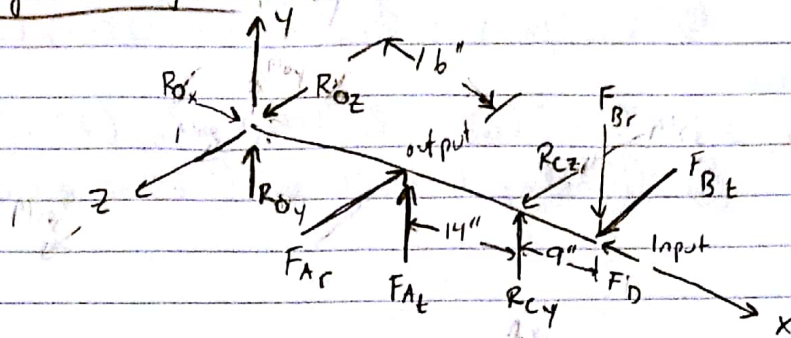 Y
16"
R0x
R0z
FBr
output
Rcz
FBt
Z
R0y
14"
9"
Input
FAr
FAt
Rcy
FD
X